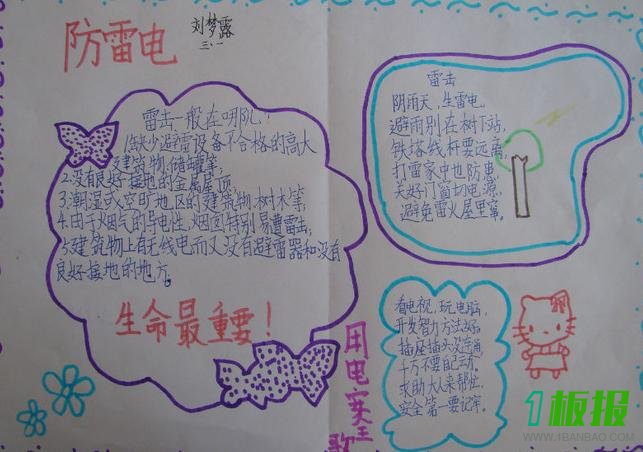 防雷电
刘梦露
三、1
雷击一般在哪儿？
1.缺少避雷设备不合格的高大
建筑物、储罐等；
2.没有良好接地的金属屋顶；
3.潮湿或空旷地区的建筑物、树木等；
4.由于烟气的导电性，烟囱特别易遭雷击；
5.建筑物上有无线电而又没有避雷器和没有
良好接地的地方。
生命最重要！
雷击
阴雨天，生雷电，
避雨别在树下站，
铁塔线杆要远离，
打雷家中也防患，
关好门窗切电源，
避免雷火屋里窜。
用电安全歌
看电视，玩电脑，
开发智力方法好。
插座插头没接通，
千万不要自己弄。
求助大人来帮忙，
安全第一要记牢。
1板报
WWW.1BANBAO.COM